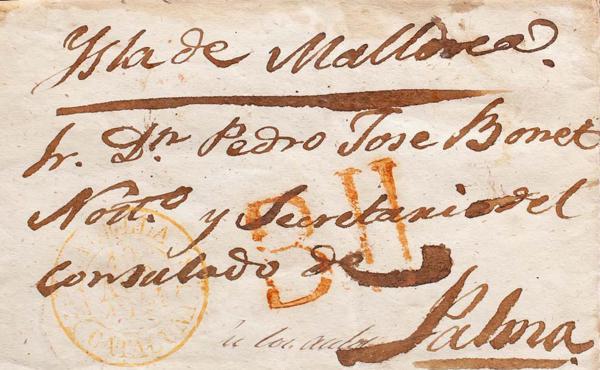 Ysla de Mallorca.
Sr. Dn Pedro Jose Bonet
Nott.º y Secretario del
consulado de
Palma